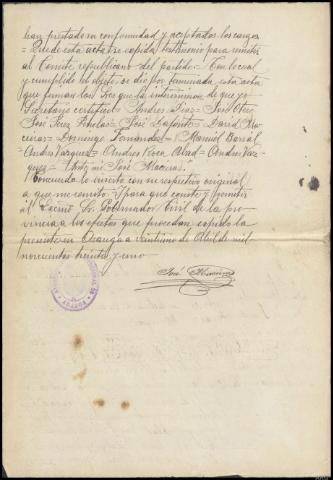 han prestado su conformidad y aceptados los cargos
= De de esta acta se expida testimonio para remitir
al Comité republicano del partido = Con lo cual
y cumplido el objeto se dió por terminada esta acta
que firman los Sres que la intervienen de que yo
Secretario certifico = Andres Diaz = José Otero
José Perez Abelas = José Laponte = David Ma
ceiras = Domingo Fernandez = Manuel Barral =
Andres Vazquez = Andres Roca Abad = Andres Váz-
quez = Ante mi José Maceiras
Concuerda lo inserto con su respectivo original
a que me remito. Y para que conste y remitir
al Excmo Sr. Gobernador Civil de la pro-
vincia a los efectos que procedan expido la
presente en Aranga a veintiuno de Abril de mil
novecientos treinta y uno
José Maceiras